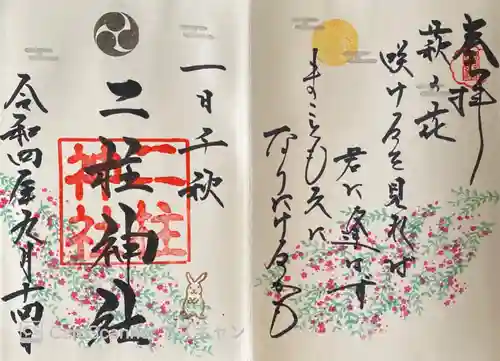 奉拝
萩の花
咲けるを見れば
君に逢はず
まことも久に
なりにけるかも
一日千秋
二柱神社
二柱神社
令和四年九月十四日